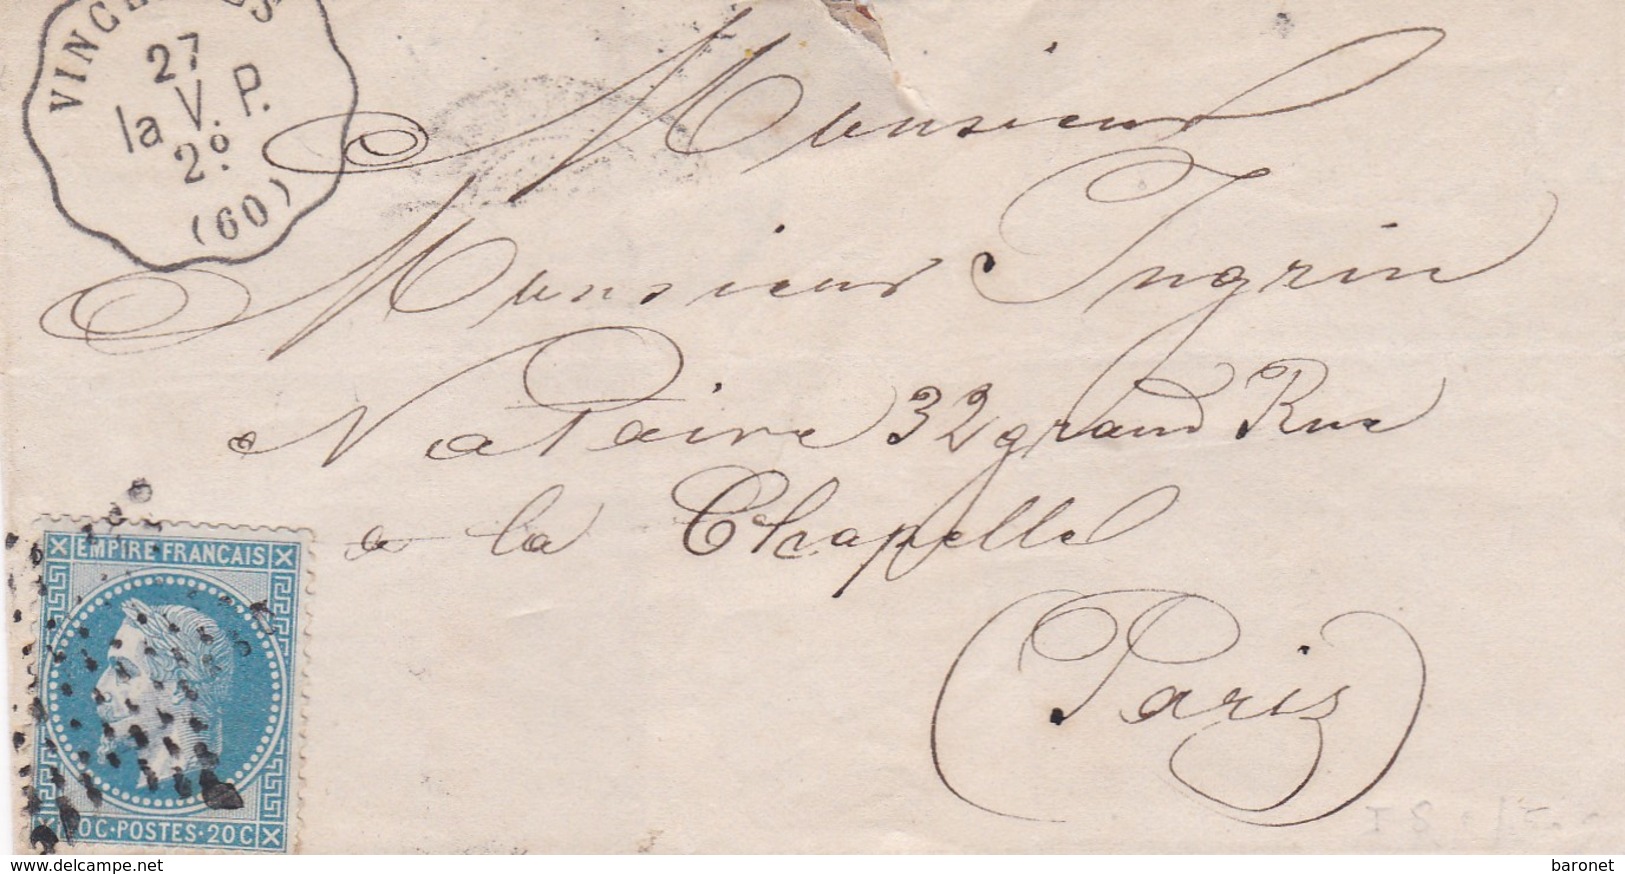 VINCENNES
27
la V. P.
2º
(60)
Monsieur
Monsieur Ingrin
Notaire 32 grand Rue
a la Chapelle
Paris
EMPIRE FRANCAIS
20C·POSTES·20C
delcampe.net
baronet